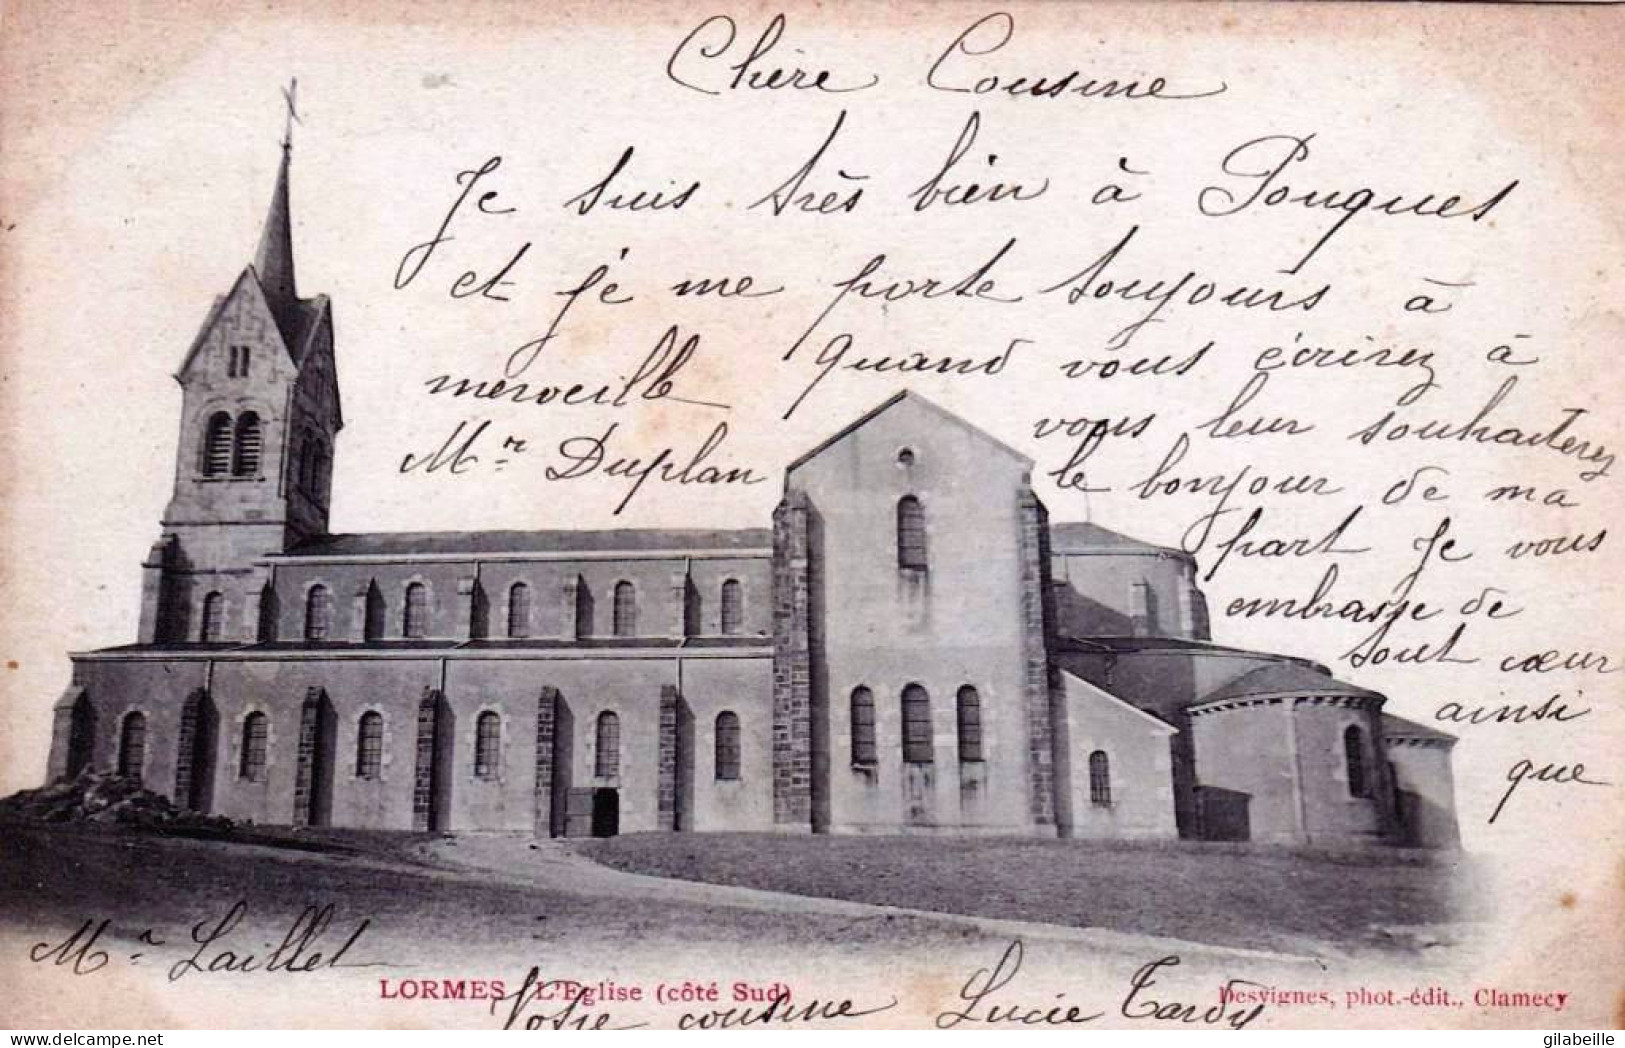 Chère Cousine
Je suis très bien à Pougues
et je me porte toujours à
merveille quand vous écrirez à
Mr Duplan vous leur souhaiterez
le bonjour de ma
part Je vous
embrasse de
tout cœur
ainsi
que
Mr Laillet
Votre cousine Lucie Tardy
LORMES - L'Eglise (côté Sud)
Desvignes, phot.-édit., Clamecy
gilabeille